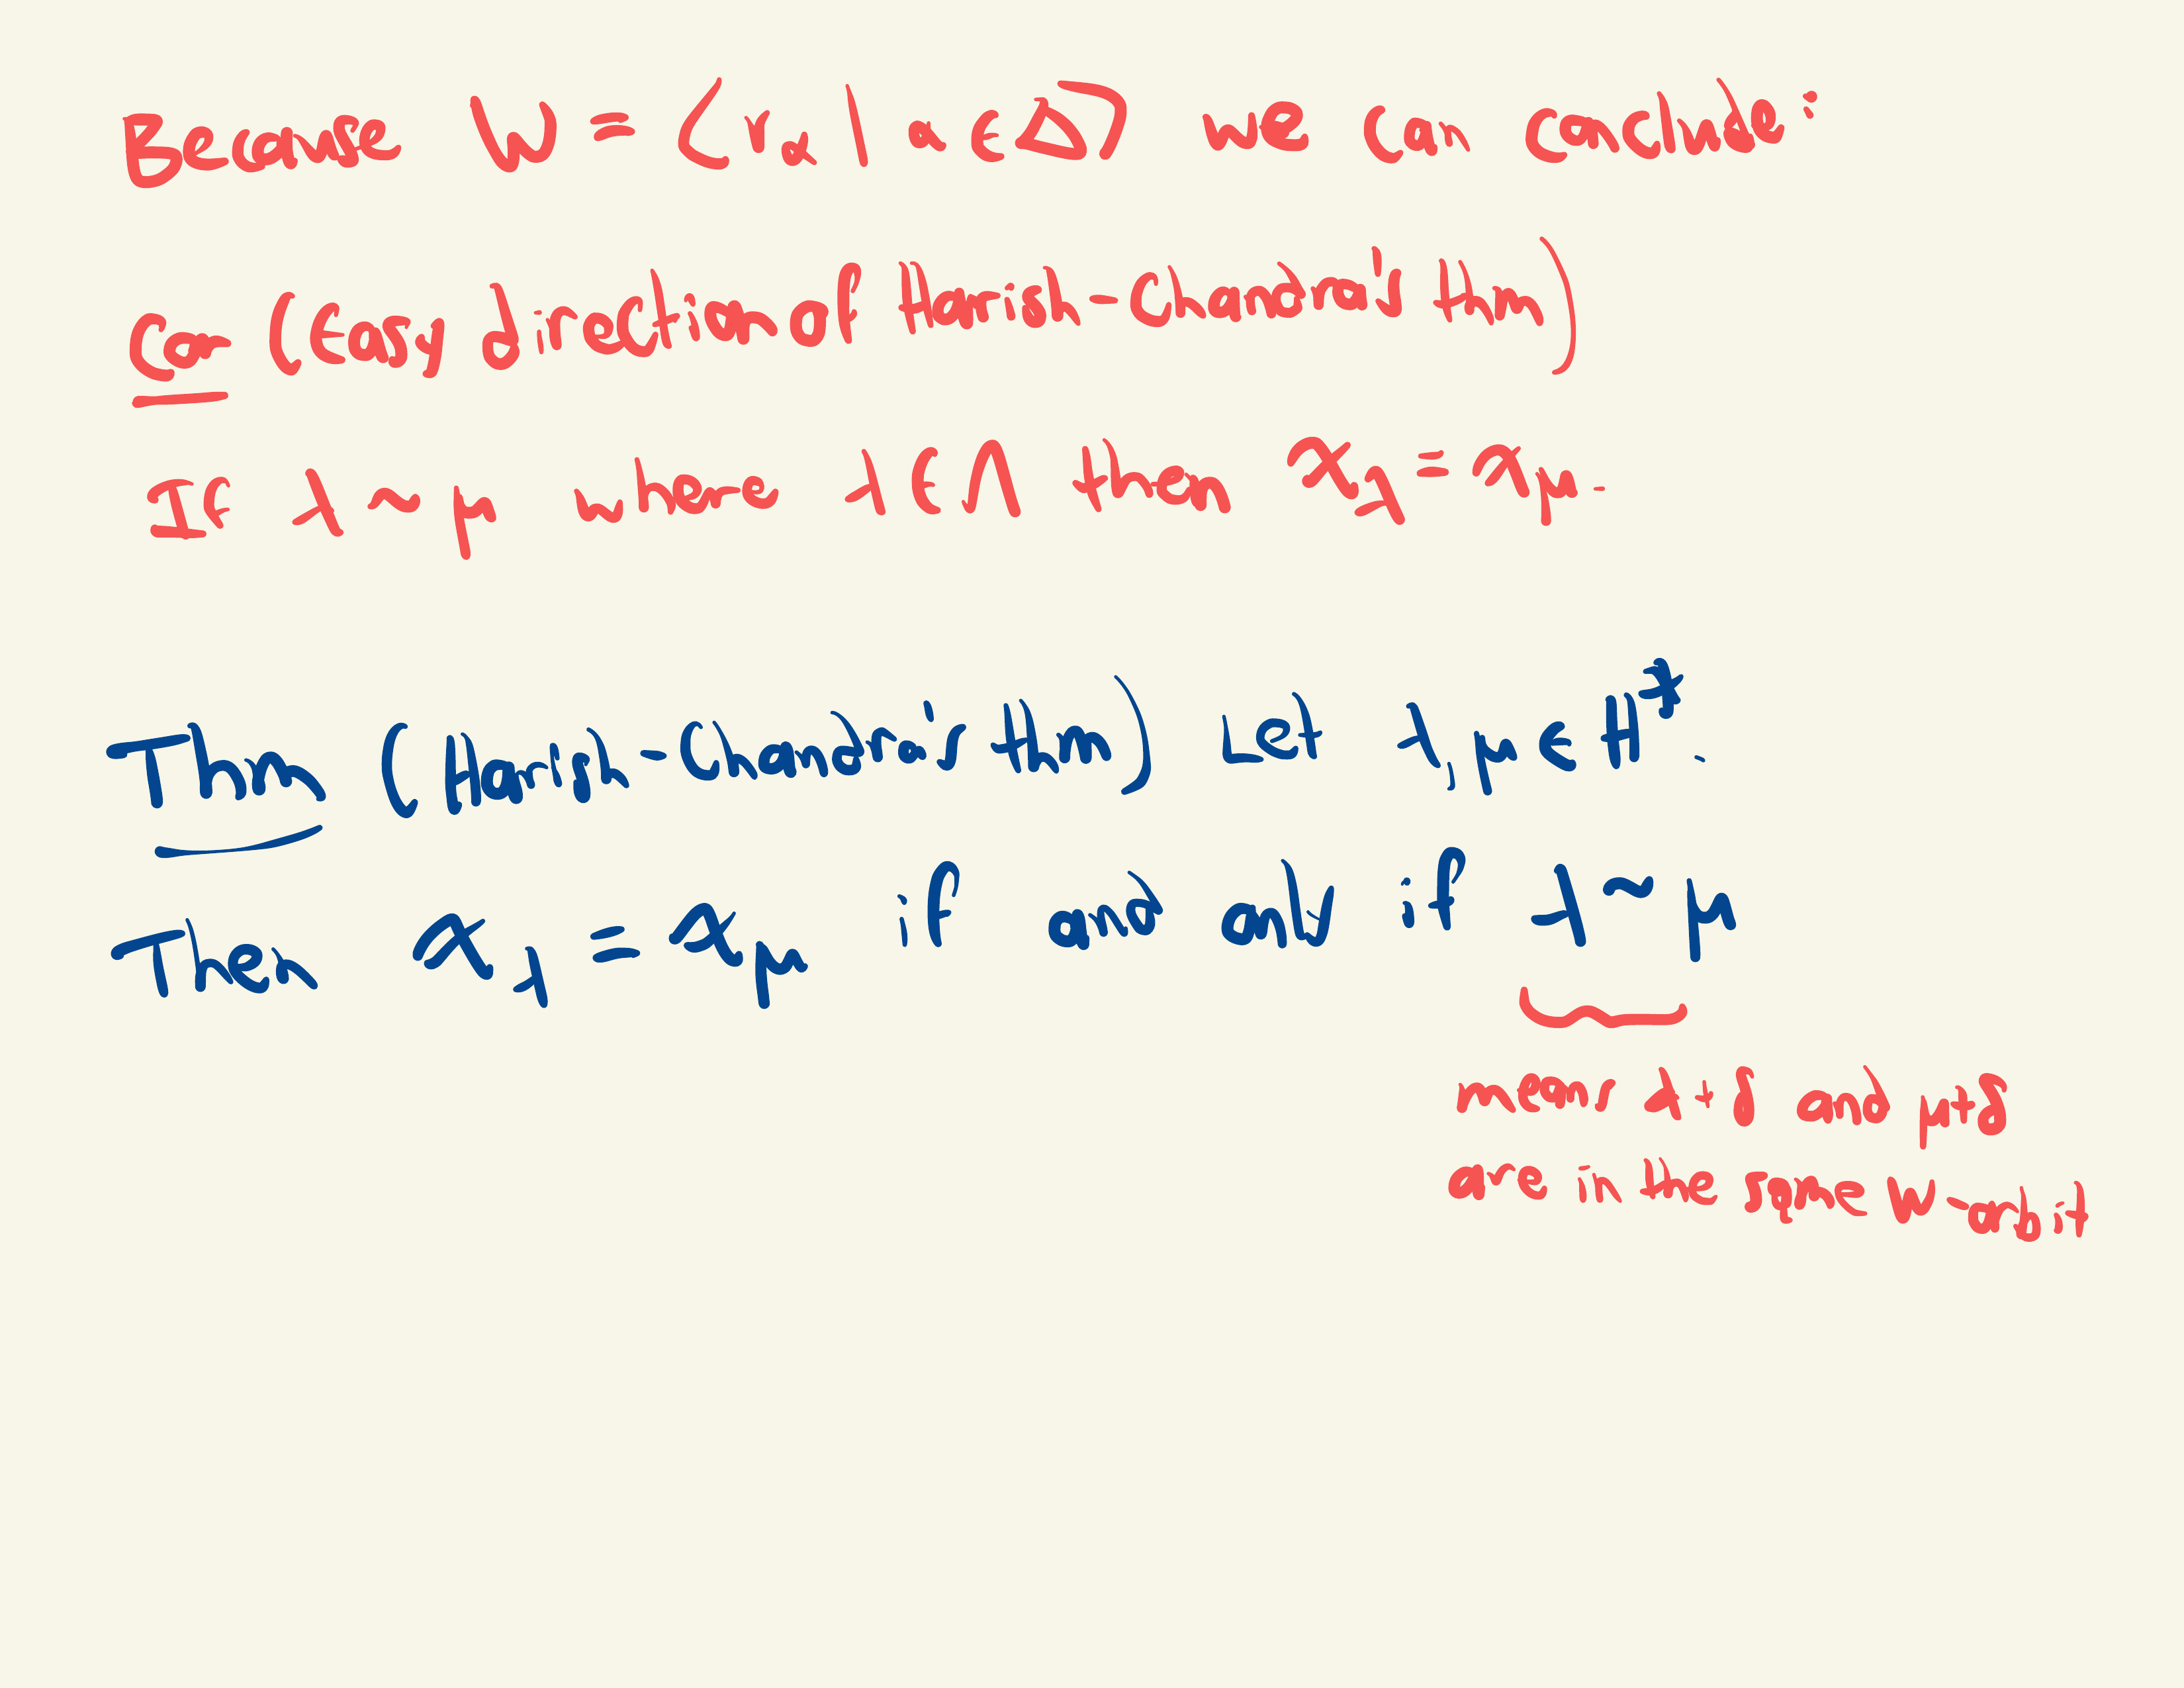 Because W = ⟨ r_α | α ∈ Δ⟩ we can conclude:
Cor (Easy direction of Harish-Chandra's thm)
If λ ~ μ where λ ∈ Λ then χ_λ = χ_μ.
Thm (Harish-Chandra's thm) Let λ, μ ∈ H*.
Then χ_λ = χ_μ if and only if λ ~ μ
means λ+δ and μ+δ
are in the same W-orbit